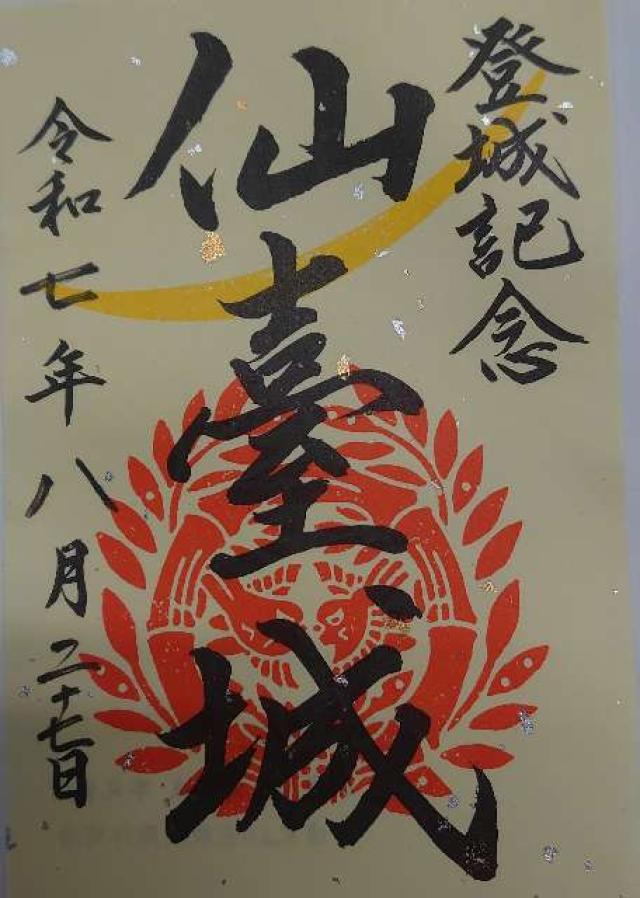 登城記念
仙臺城
令和七年八月二十七日